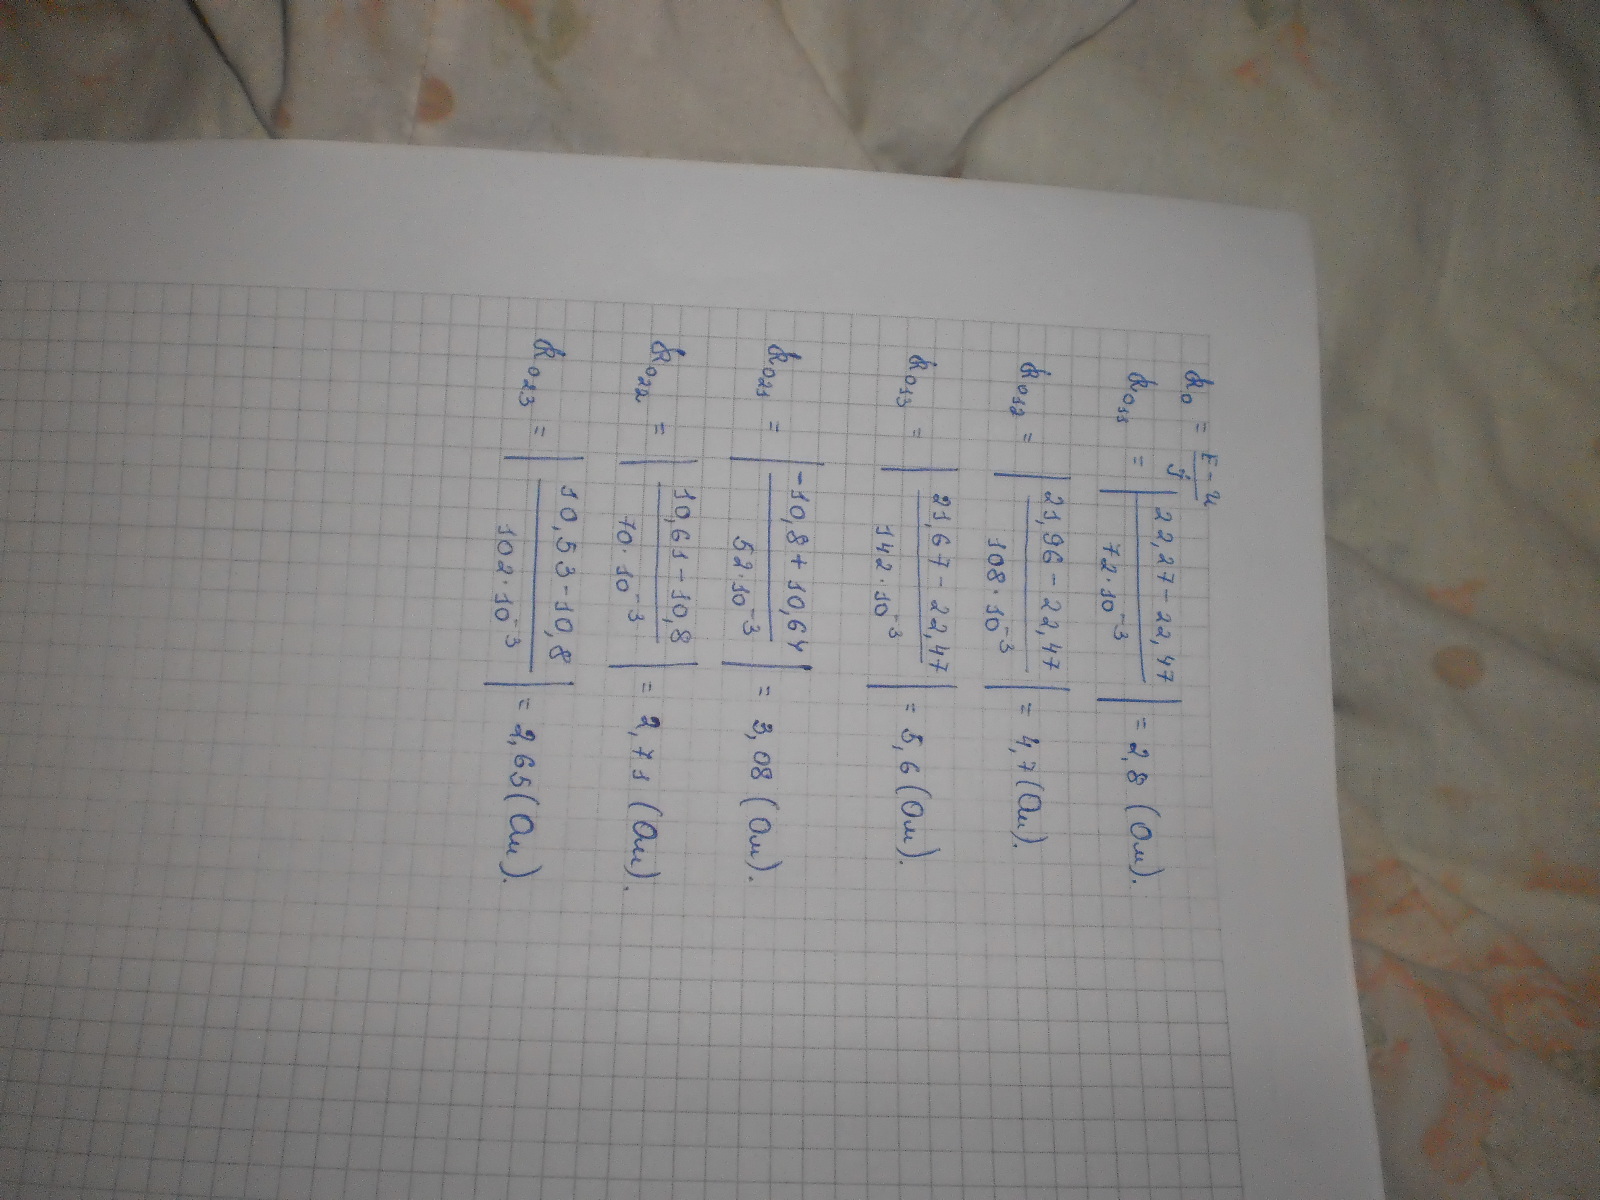 R₀ = (E - U) / I
R₀₁₁ = | (22,27 - 22,47) / (72·10⁻³) | = 2,8 (Ом).
R₀₁₂ = | (21,96 - 22,47) / (108·10⁻³) | = 4,7 (Ом).
R₀₁₃ = | (21,67 - 22,47) / (142·10⁻³) | = 5,6 (Ом).
R₀₂₁ = | (-10,8 + 10,64) / (52·10⁻³) | = 3,08 (Ом).
R₀₂₂ = | (10,61 - 10,8) / (70·10⁻³) | = 2,71 (Ом).
R₀₂₃ = | (10,53 - 10,8) / (102·10⁻³) | = 2,65 (Ом).